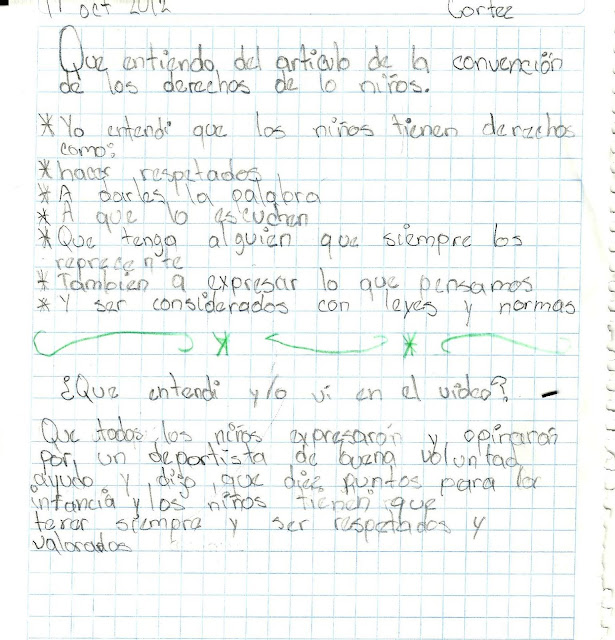 11 oct 2012 Cortez
Que entiendo del articulo de la convención
de los derechos de lo niños.
* Yo entendi que los niños tienen derechos
como:
* hacer respetados
* A darles la palabra
* A que lo escuchen
* Que tenga alguien que siempre los
reprecente
* Tambien a expresar lo que pensamos
* Y ser considerados con leyes y normas
¿Que entendi y/o vi en el video?
Que todos los niños expresaron y opinaron
por un deportista de buena voluntad
ayudo y dijo que diez puntos para la
infancia y los niños tienen que
tener siempre y ser respetados y
valorados